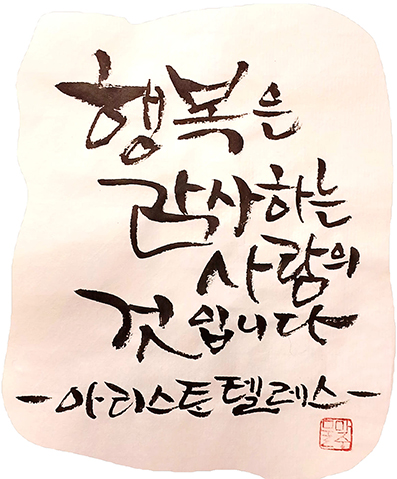 행복은
감사하는
사람의
것입니다
-아리스토텔레스-